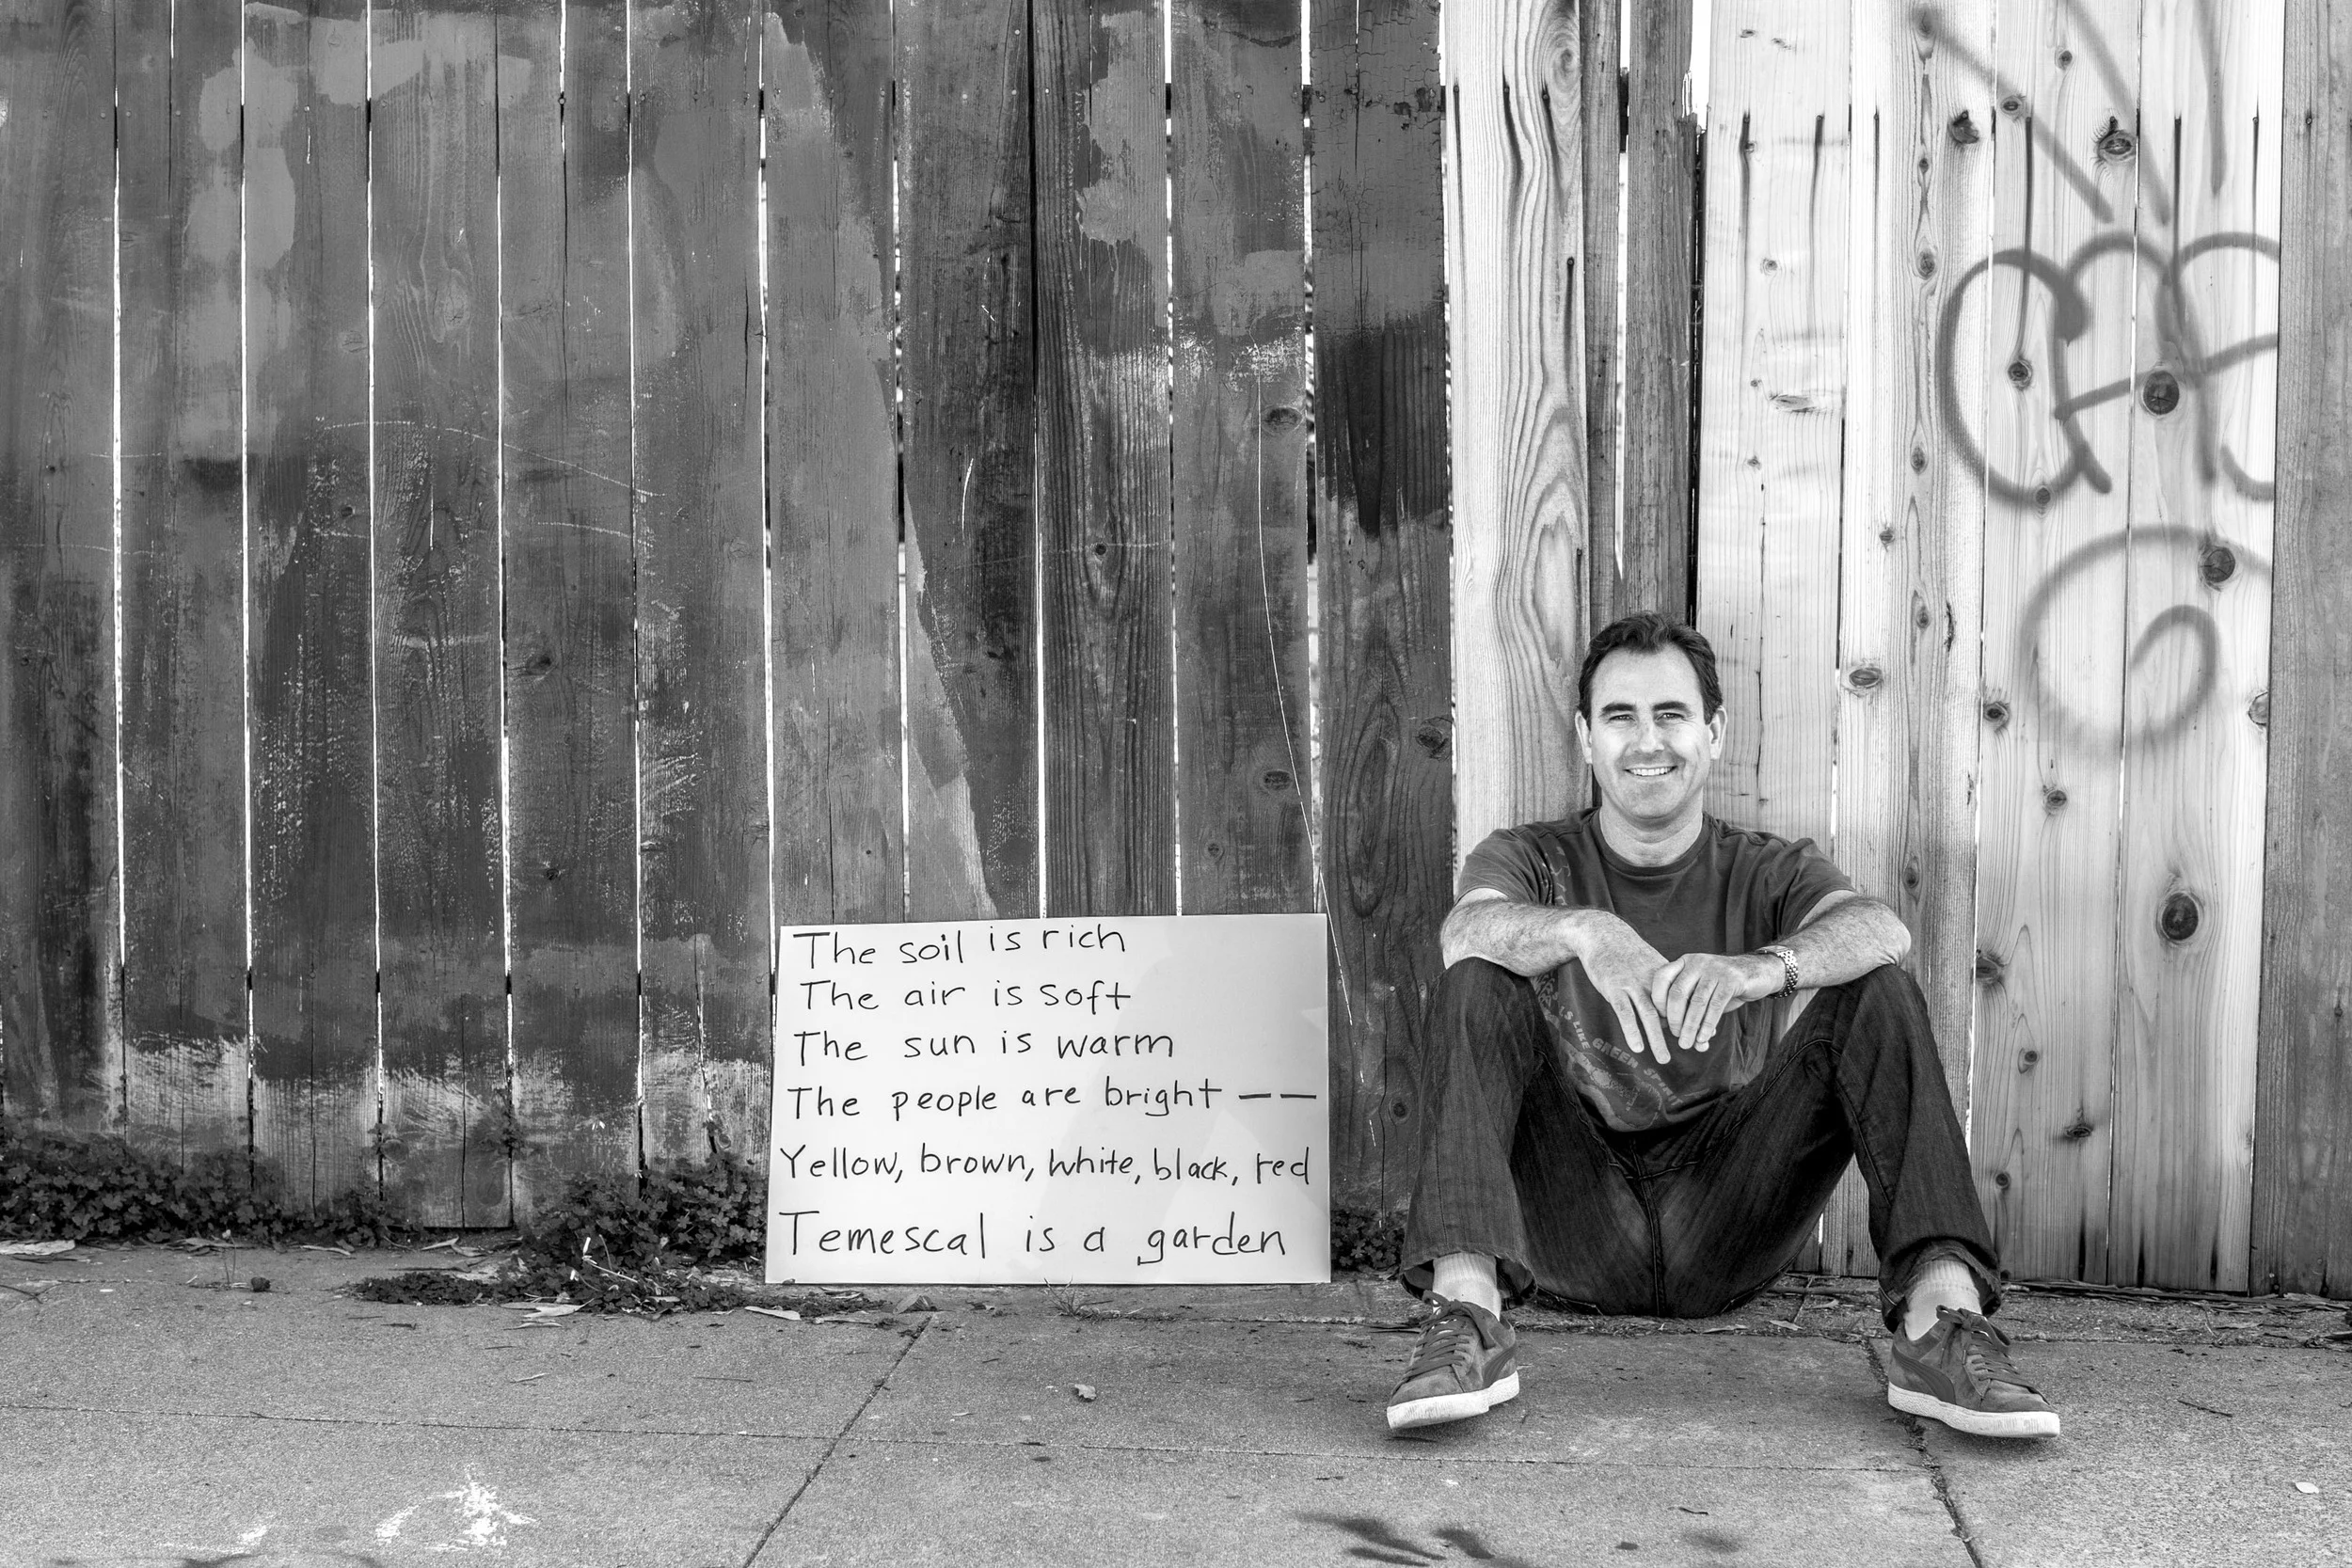 The soil is rich
The air is soft
The sun is warm
The people are bright — —
Yellow, brown, white, black, red
Temescal is a garden
IS LIKE GREEN